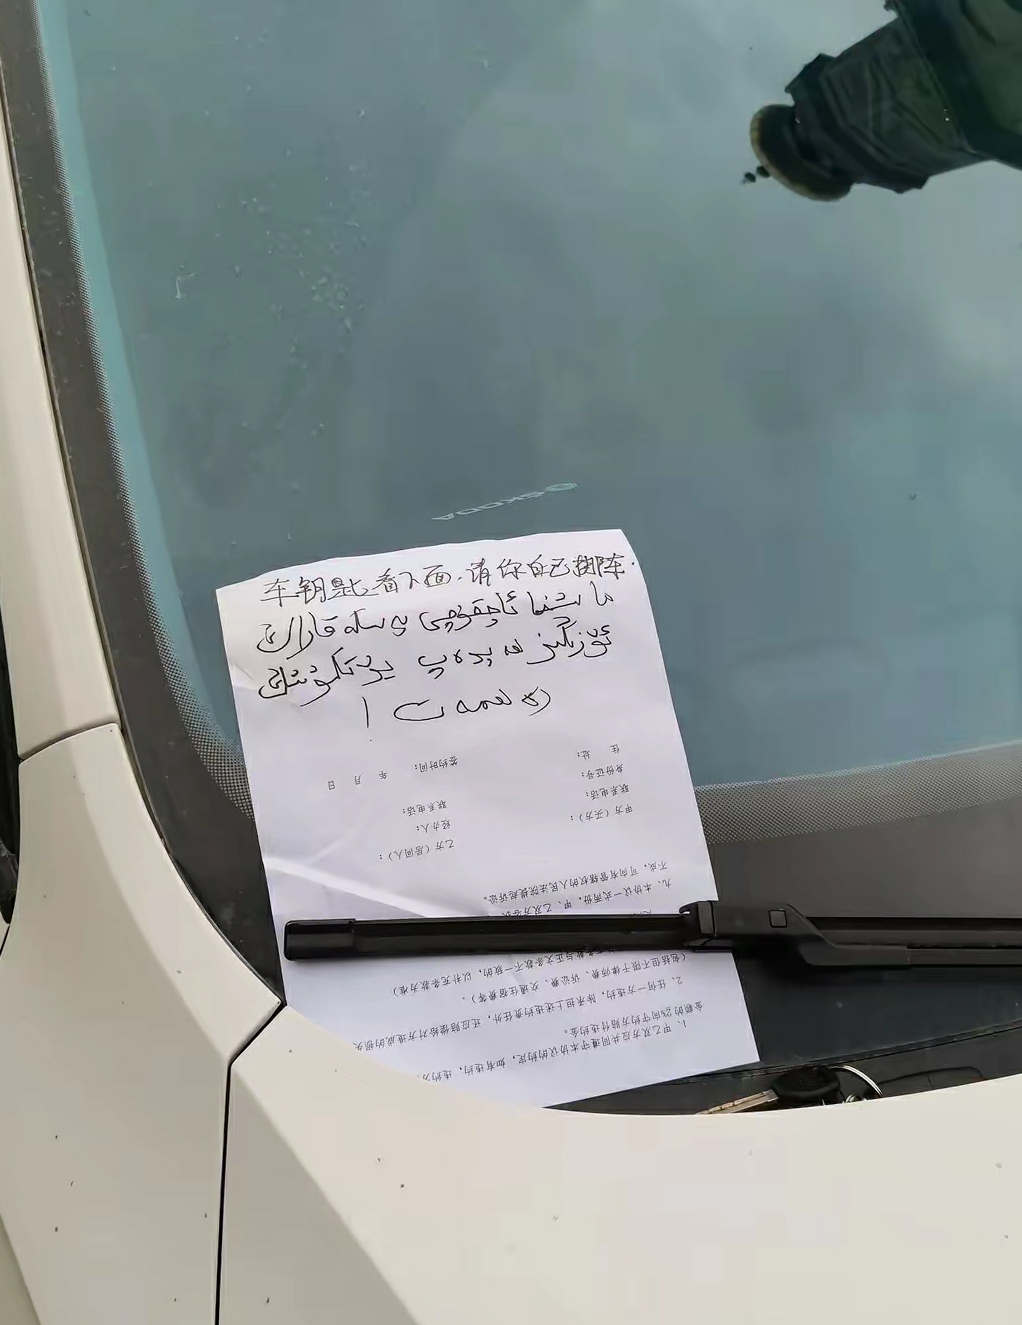 SKODA
车钥匙看下面.请你自己挪车.
ماشىنا ئاچقۇچى پەسكە قاراڭ
ئۆزىڭىز ھەيدەپ
رەھمەت !
1. 甲乙双方应共同遵守本协议的约定，如有违约，违约方
金额的2%向守约方赔付违约金。
2. 任何一方违约，除承担上述违约责任外，还应赔偿给对方造成的损失
(包括但不限于律师费、诉讼费、交通住宿费等)。
条款与正文条款不一致的，以补充条款为准)
九、本协议一式两份，甲、乙双方各执
不成，可向有管辖权的人民法院提起诉讼。
甲方(买方)： 乙方(居间人)：
联系电话： 经办人：
身份证号： 联系电话：
住 址： 签约时间： 年 月 日